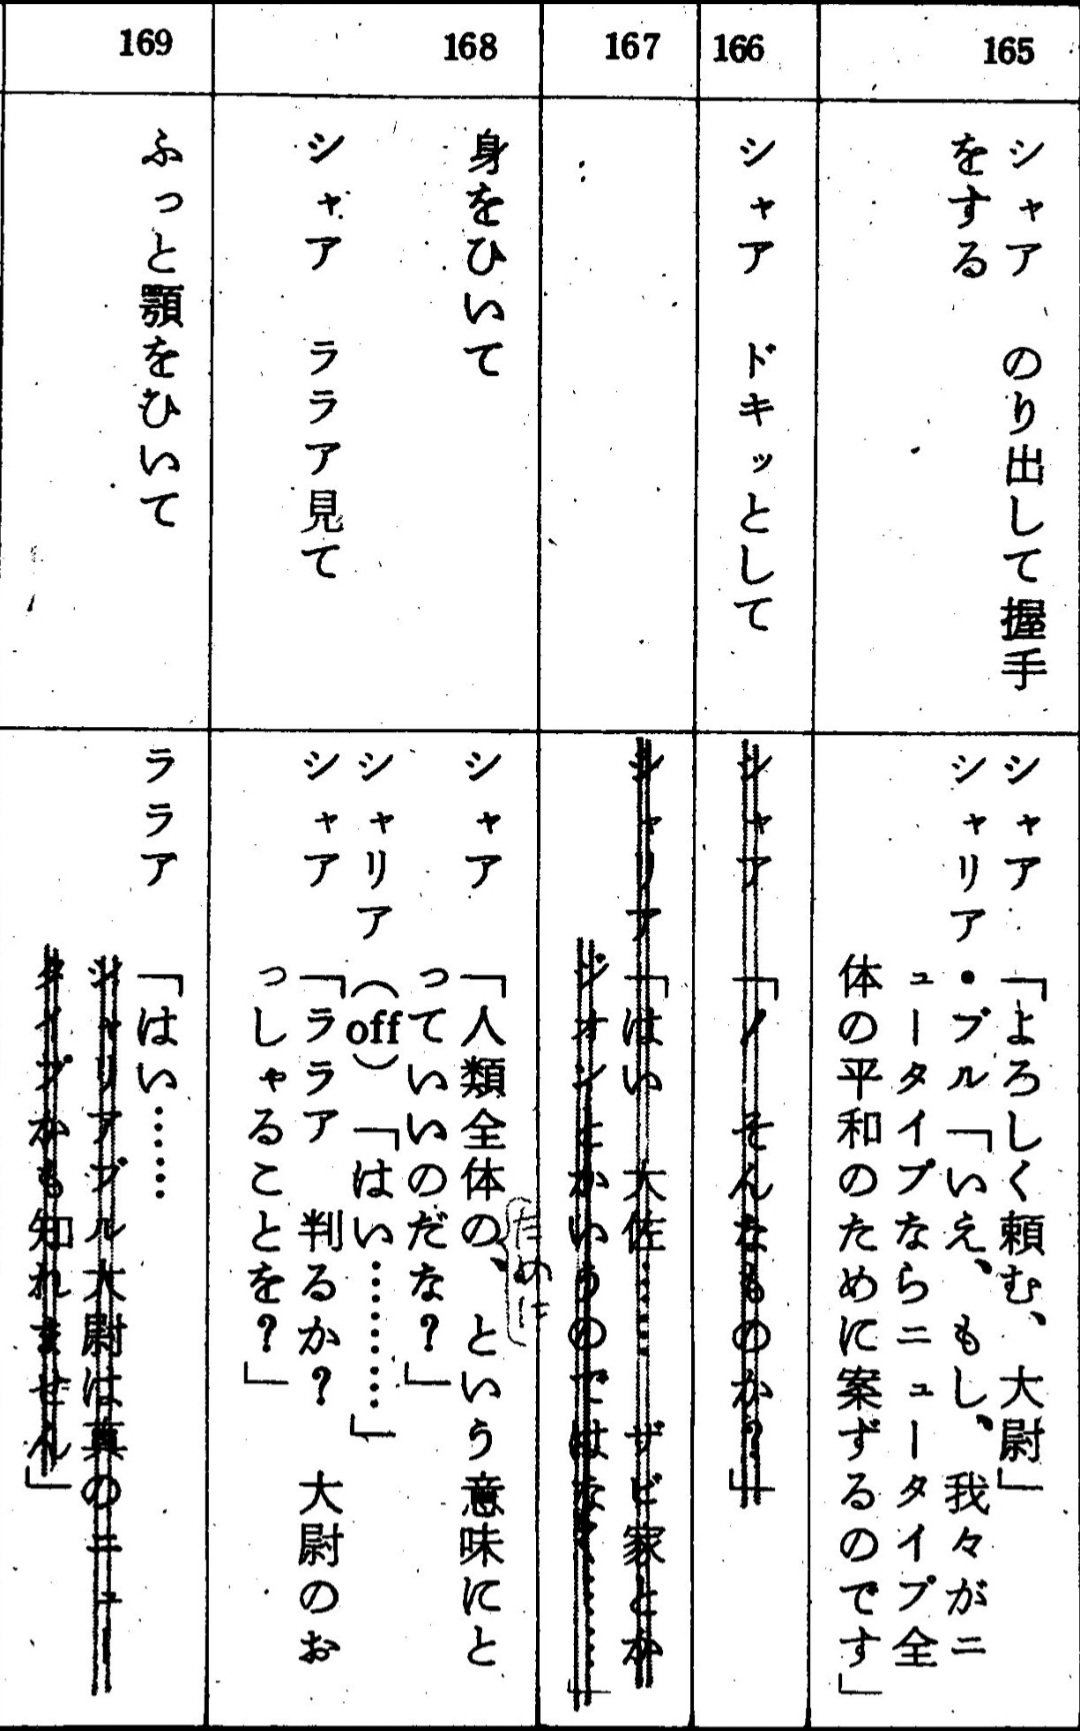 165
シャア　のり出して握手
をする
シャア　「よろしく頼む、大尉」
シャリア・ブル「いえ、もし、我々がニ
ュータイプならニュータイプ全
体の平和のために案ずるのです」
166
シャア　ドキッとして
シャア　「ノ　そんなものか?」
167
シャリア「はい　大佐……　ザビ家とか
ジオンとかいうのではな……」
168
身をひいて
シャア　「人類全体の、という意味にと
ために
っていいのだな?」
シャリア(off)「はい………」
シャア　ララア見て
シャア　「ララア　判るか?　大尉のお
っしゃることを?」
169
ふっと顎をひいて
ララア　「はい……
シャリアブル大尉は真のニュー
タイプかも知れません」